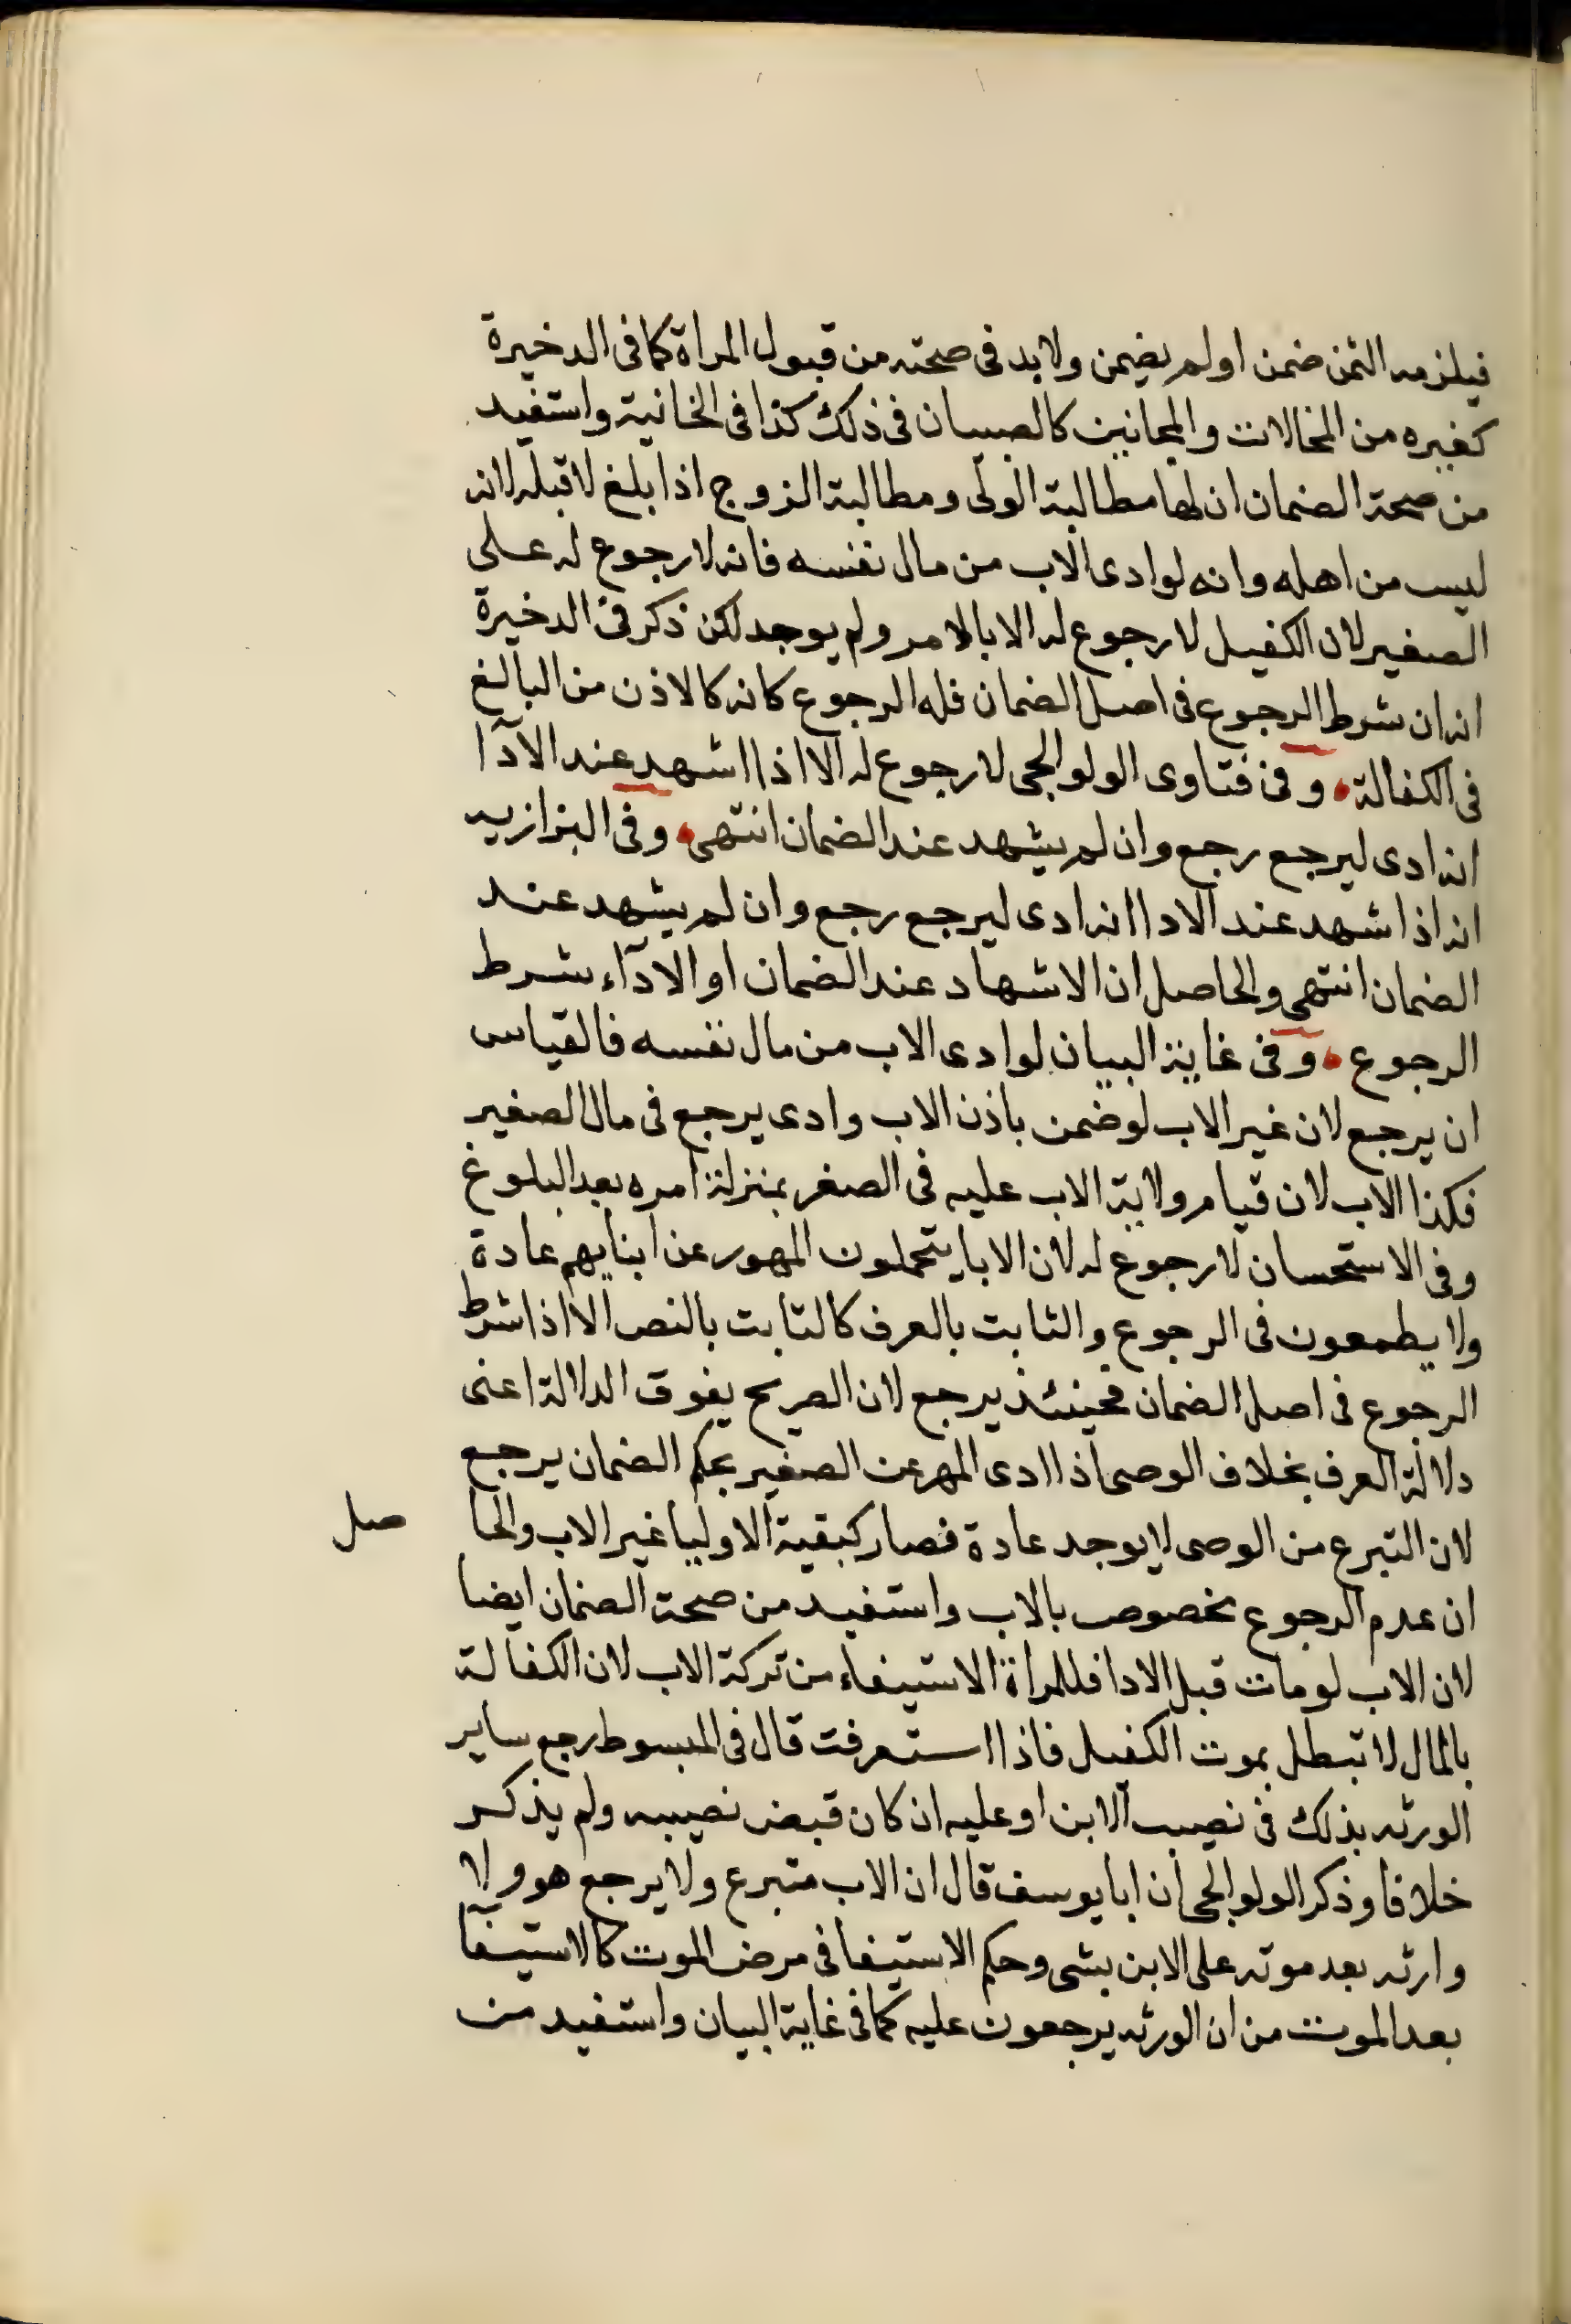 فيلزمه الثمن ضمن او لم يضمن ولا بد فى صحته من قبول المراة كما فى الدخيرة
كغيره من المخالات والمجانين كالصبيان فى ذلك كذا فى الخانية واستفيد
من صحة الضمان ان لها مطالبة الولى ومطالبة الزوج اذا بلغ لا قبله لانه
ليس من اهله وانه لو ادى الاب من مال نفسه فانه لا رجوع له على
الصغير لان الكفيل لا رجوع له الا بالامر ولم يوجد لكن ذكر فى الدخيرة
انه ان شرط الرجوع فى اصل الضمان فله الرجوع كانه كالاذن من البالغ
فى الكفالة وفى فتاوى الولوالجى لا رجوع له الا اذا اشهد عند الآدا
انه ادى ليرجع رجع وان لم يشهد عند الضمان انتهى وفى البزازيه
انه اذا شهد عند الادا انه ادى ليرجع رجع وان لم يشهد عند
الضمان انتهى والحاصل ان الاشهاد عند الضمان او الآداء شرط
الرجوع وفى غاية البيان لو ادى الاب من مال نفسه فالقياس
ان يرجع لان غير الاب لو ضمن باذن الاب وادى يرجع فى مال الصغير
فكذا الاب لان قيام ولاية الاب عليه فى الصغر بمنزلة امره بعد البلوغ
وفى الاستحسان لا رجوع له لان الابا يتحملون المهور عن ابنايهم عادة
ولا يطمعون فى الرجوع والثابت بالعرف كالثابت بالنص الا اذا شرط
الرجوع فى اصل الضمان فحينئذ يرجع لان الصريح يفوق الدلالة اعنى
دلالة العرف بخلاف الوصى اذا ادى المهر عن الصغير بحكم الضمان يرجع
لان التبرع من الوصى لا يوجد عادة فصار كبقية الاوليا غير الاب والحا صل
ان عدم الرجوع مخصوص بالاب واستفيد من صحة الضمان ايضا
لان الاب لو مات قبل الادا فللمراة الاستيفاء من تركة الاب لان الكفالة
بالمال لا تبطل بموت الكفيل فاذا استعرفت قال فى المبسوط رجع ساير
الورثه بذلك فى نصيب الابن او عليه ان كان قبض نصيبه ولم يذكر
خلافا وذكر الولوالجى ان ابا يوسف قال ان الاب متبرع ولا يرجع هو ولا
وارثه بعد موته على الابن بشى وحكم الاستيفا فى مرض الموت كالاستيفآ
بعد الموت من ان الورثه يرجعون عليه كما فى غاية البيان واستفيد من